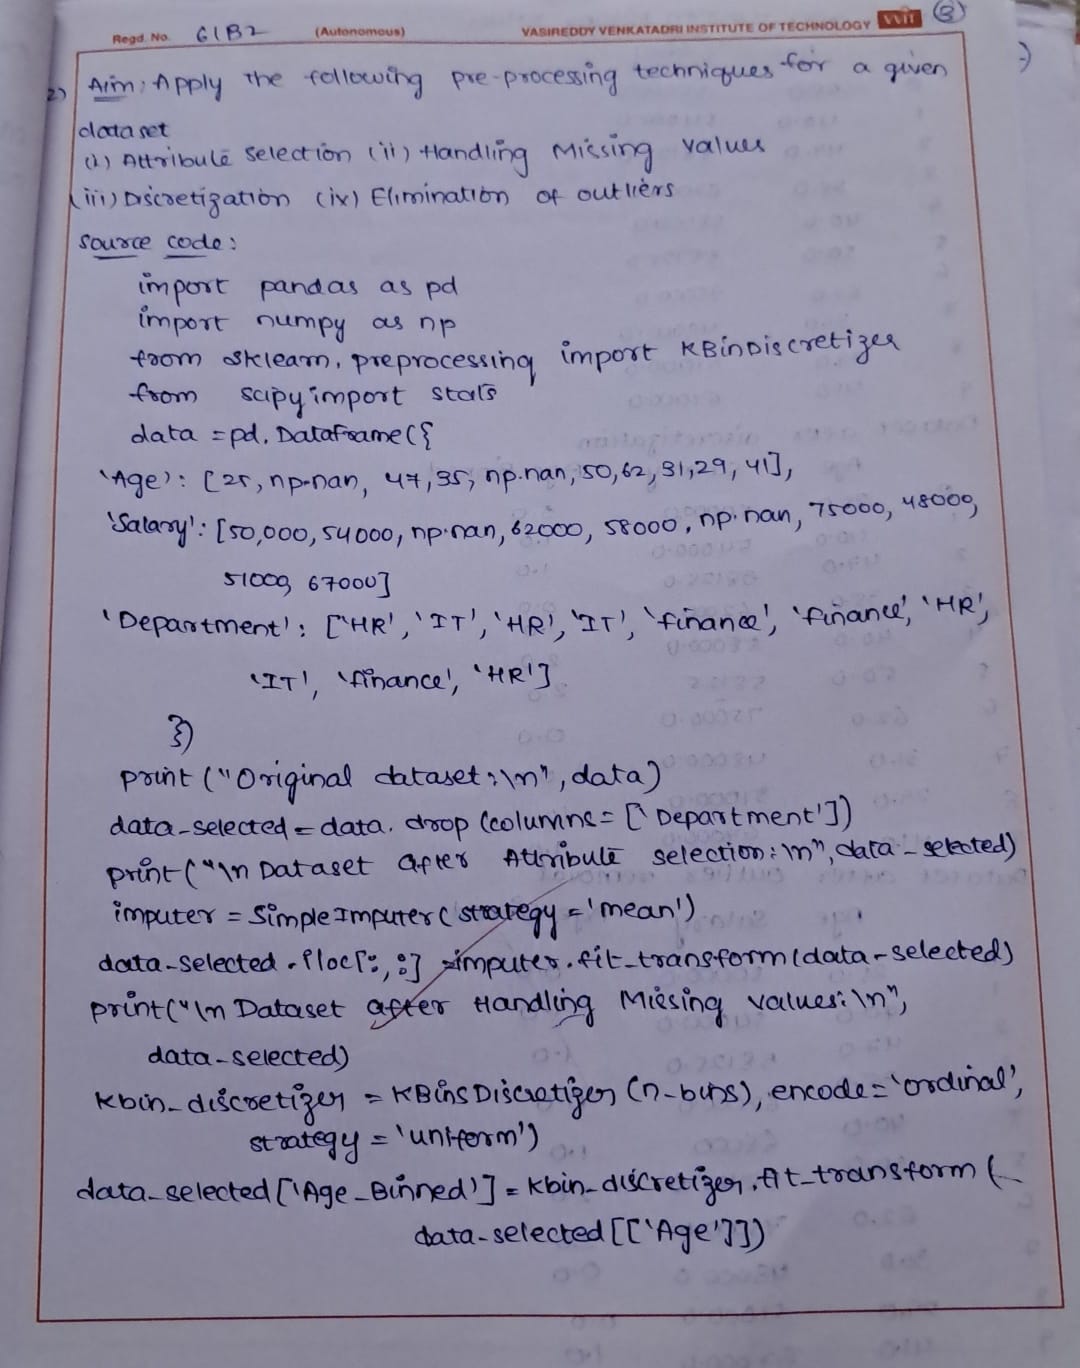 Regd. No. 61B2 (Autonomous) VASIREDDY VENKATADRI INSTITUTE OF TECHNOLOGY VVIT 3
2) Aim: Apply the following pre-processing techniques for a given
dataset
(i) Attribute Selection (ii) Handling Missing values
(iii) Discretization (iv) Elimination of outliers
source code:
import pandas as pd
import numpy as np
from sklearn. preprocessing import KBinDiscretizer
from scipy import stats
data = pd. DataFrame({
'Age': [25, np.nan, 47, 35, np.nan, 50, 62, 31, 29, 41],
'Salary': [50,000, 54000, np.nan, 62000, 58000, np.nan, 75000, 48000,
51000, 67000]
'Department': ['HR', 'IT', 'HR', 'IT', 'finance', 'finance', 'HR',
'IT', 'finance', 'HR']
})
print ("Original dataset:\n", data)
data-selected = data. drop (columns = ['Department'])
print ("\n Dataset after Attribute selection:\n", data-selected)
imputer = SimpleImputer (strategy = 'mean')
data-selected.iloc[:,:] = imputer.fit_transform(data-selected)
print("\n Dataset after Handling Missing values:\n",
data-selected)
kbin_discretizer = KBinsDiscretizer (n-bins), encode = 'ordinal',
strategy = 'uniform')
data_selected ['Age_Binned'] = kbin_discretizer.fit_transform (
data-selected [['Age']])